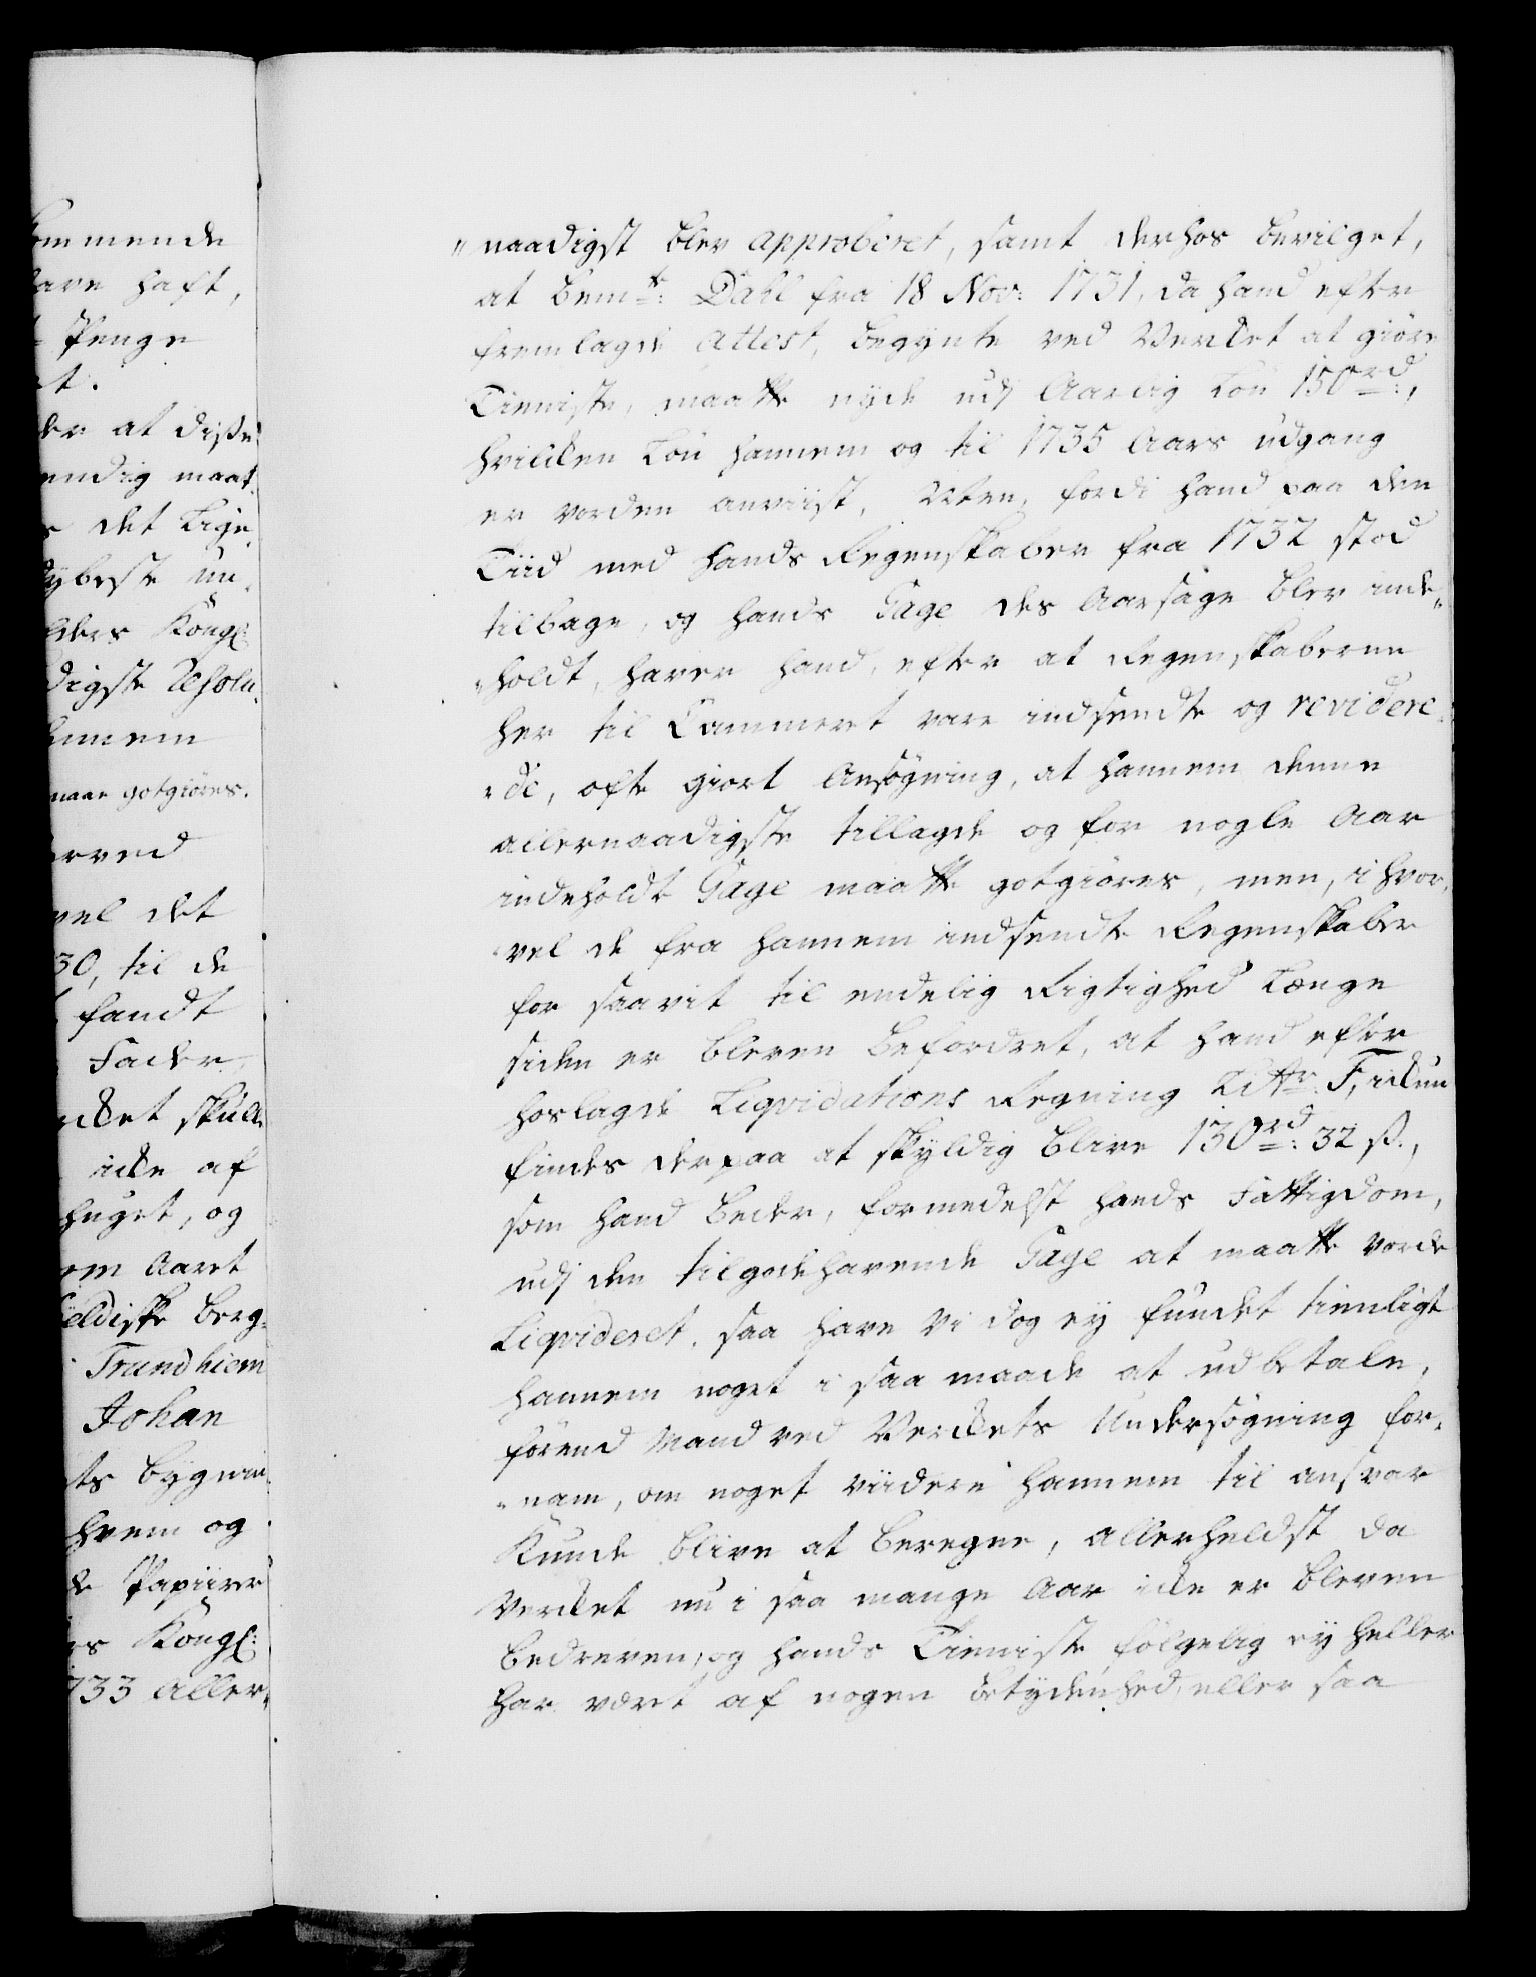 ommende
are haft,
Penge
t.
der at disse
endig maat
det Lige
dybeste un¸
lders Kongl:
digste Resolu¸
hannem
maae gotgiøres.
erved
vel det
30, til de
fandt
Fader
rket skulle
icke af
huget, og
em Aaret
feldiske Berg¸
Trundhiem
Johan
ts bygnin¸
hvem og
de Papiirer
rs Kongl:
733 Aller¸
„naadigst blev approberet, samt derhos bevilget,
at bemte: Dahl fra 18 Nov: 1731, da hand efter
fremlagde Attest, begynte ved Verket at giøre
Tienniste, maatte nyde udj Aarlig Løn 150 rd:,
hvilcken Løn hannem og til 1735 Aars udgang
er vorden anviist, Men, fordi hand paa den
Tiid med hands Regenskaber fra 1732 stod
tilbage, og hands Gage des Aarsage blev inde„
„holdt, haver hand, efter at Regenskaberne
her til Cammeret vare indsendte og revidere„
„de, ofte giort Ansøgning, at hannem denne
allernaadigste tillagde og for nogle Aar
indeholdt Gage maatte gotgiøres, men, i hvor„
„vel de fra hannem indsendte Regenskaber
for saavit til endelig Rigtighed Længe
siden er bleven befordret, at hand efter
hoslagde Liqvidations Regning Littr: F, ickun
findes derpaa at skyldig blive 130 rd: 32 ß.,
som hand beder, formedelst hands Fattigdom,
udj den tilgodehavende Gage at maatte vorde
Liqvideret. saa have Vi dog ey fundet tienligt
hannem noget i saa maade at udbetale,
førend mand ved Verckets Undersøgning for„
„nam, om noget viidere hannem til ansvar
kunde blive at beregne, allerheldst da
Vercket nu i saa mange Aar icke er bleven
bedreven, og hands Tienniste følgelig ey heller
har vært af nogen betydenhed, eller saa